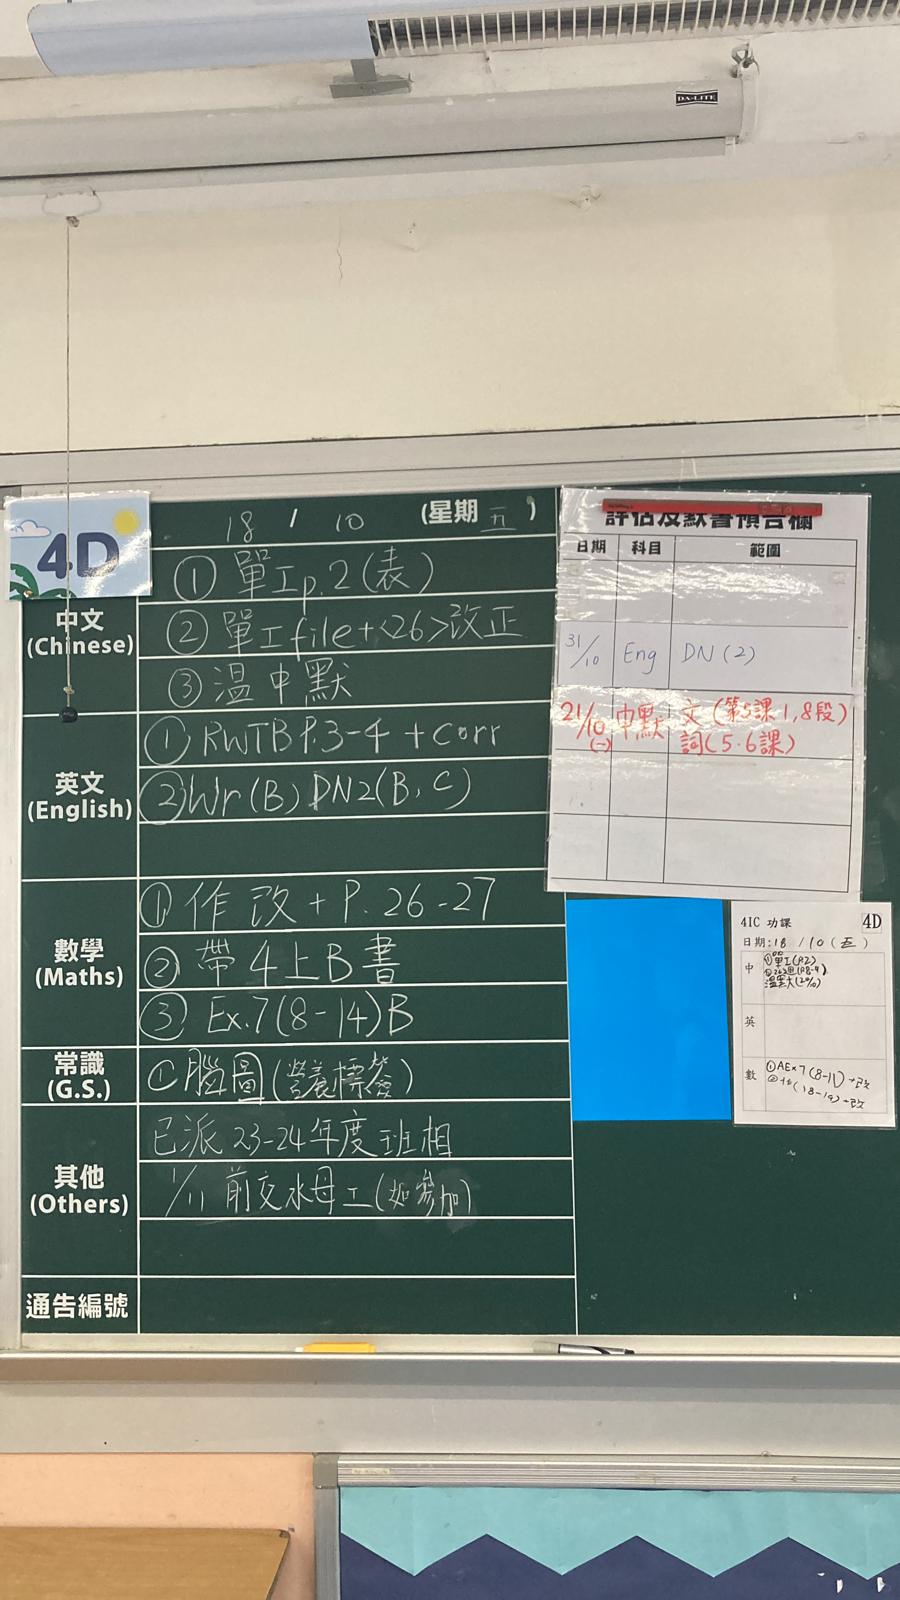 DA-LITE
4D
18 / 10 (星期 五 )
中文
(Chinese)
① 單工p.2(表)
② 單工file+<26>改正
③ 溫中默
英文
(English)
① RWTB P.3-4 + corr
② Wr(B) DN2(B, C)
數學
(Maths)
① 作改 + P. 26-27
② 帶4上B書
③ Ex.7(8-14)B
常識
(G.S.)
① 腦圖(營養標簽)
其他
(Others)
已派 23-24年度班相
1/11 前交水母工(如參加)
通告編號
評估及默書預告欄
日期 科目 範圍
31/10 Eng DN(2)
21/10 (一) 中默 文(第5課1,8段)
詞(5.6課)
4IC 功課 4D
日期:18 /10 (五)
中 ①單工(P.2)
英
數 ①AEx7(8-11)+改